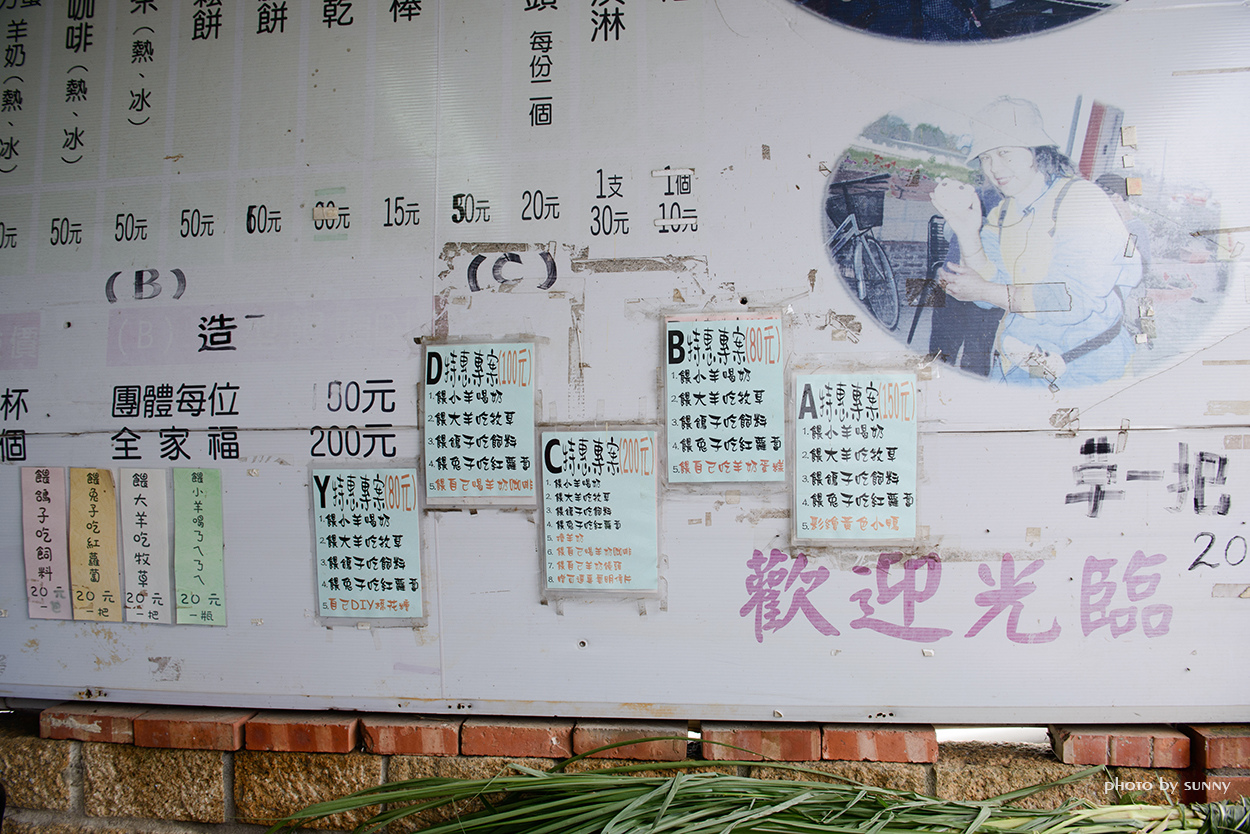 羊奶(熱、冰)
咖啡(熱、冰)
(熱、冰)
鬆餅
餅
乾
棒
每份二個
淋
元
50元
50元
50元
60元
30元
15元
50元
20元
1支
30元
1個
10元
(B)
(C)
(B)
造
杯
團體每位
元
個
全家福
200元
餵鴿子吃飼料
20元
一把
餵兔子吃紅蘿蔔
20元
一把
餵大羊吃牧草
20元
一把
餵小羊喝ㄋㄟㄋㄟ
20元
一瓶
Y特惠專案(80元)
1.餵小羊喝奶
2.餵大羊吃牧草
3.餵鴿子吃飼料
4.餵兔子吃紅蘿蔔
5.自己DIY棉花糖
D特惠專案(100元)
1.餵小羊喝奶
2.餵大羊吃牧草
3.餵鴿子吃飼料
4.餵兔子吃紅蘿蔔
5.餵自己喝羊奶咖啡
C特惠專案(200元)
1.餵小羊喝奶
2.餵大羊吃牧草
3.餵鴿子吃飼料
4.餵兔子吃紅蘿蔔
5.擠羊奶
6.餵自己喝羊奶咖啡
7.餵自己羊奶
8.
B特惠專案(80元)
1.餵小羊喝奶
2.餵大羊吃牧草
3.餵鴿子吃飼料
4.餵兔子吃紅蘿蔔
5.餵自己吃羊奶蛋糕
A特惠專案(150元)
1.餵小羊喝奶
2.餵大羊吃牧草
3.餵鴿子吃飼料
4.餵兔子吃紅蘿蔔
5.彩繪黃色小鴨
草一把
20
歡迎光臨
photo by sunny